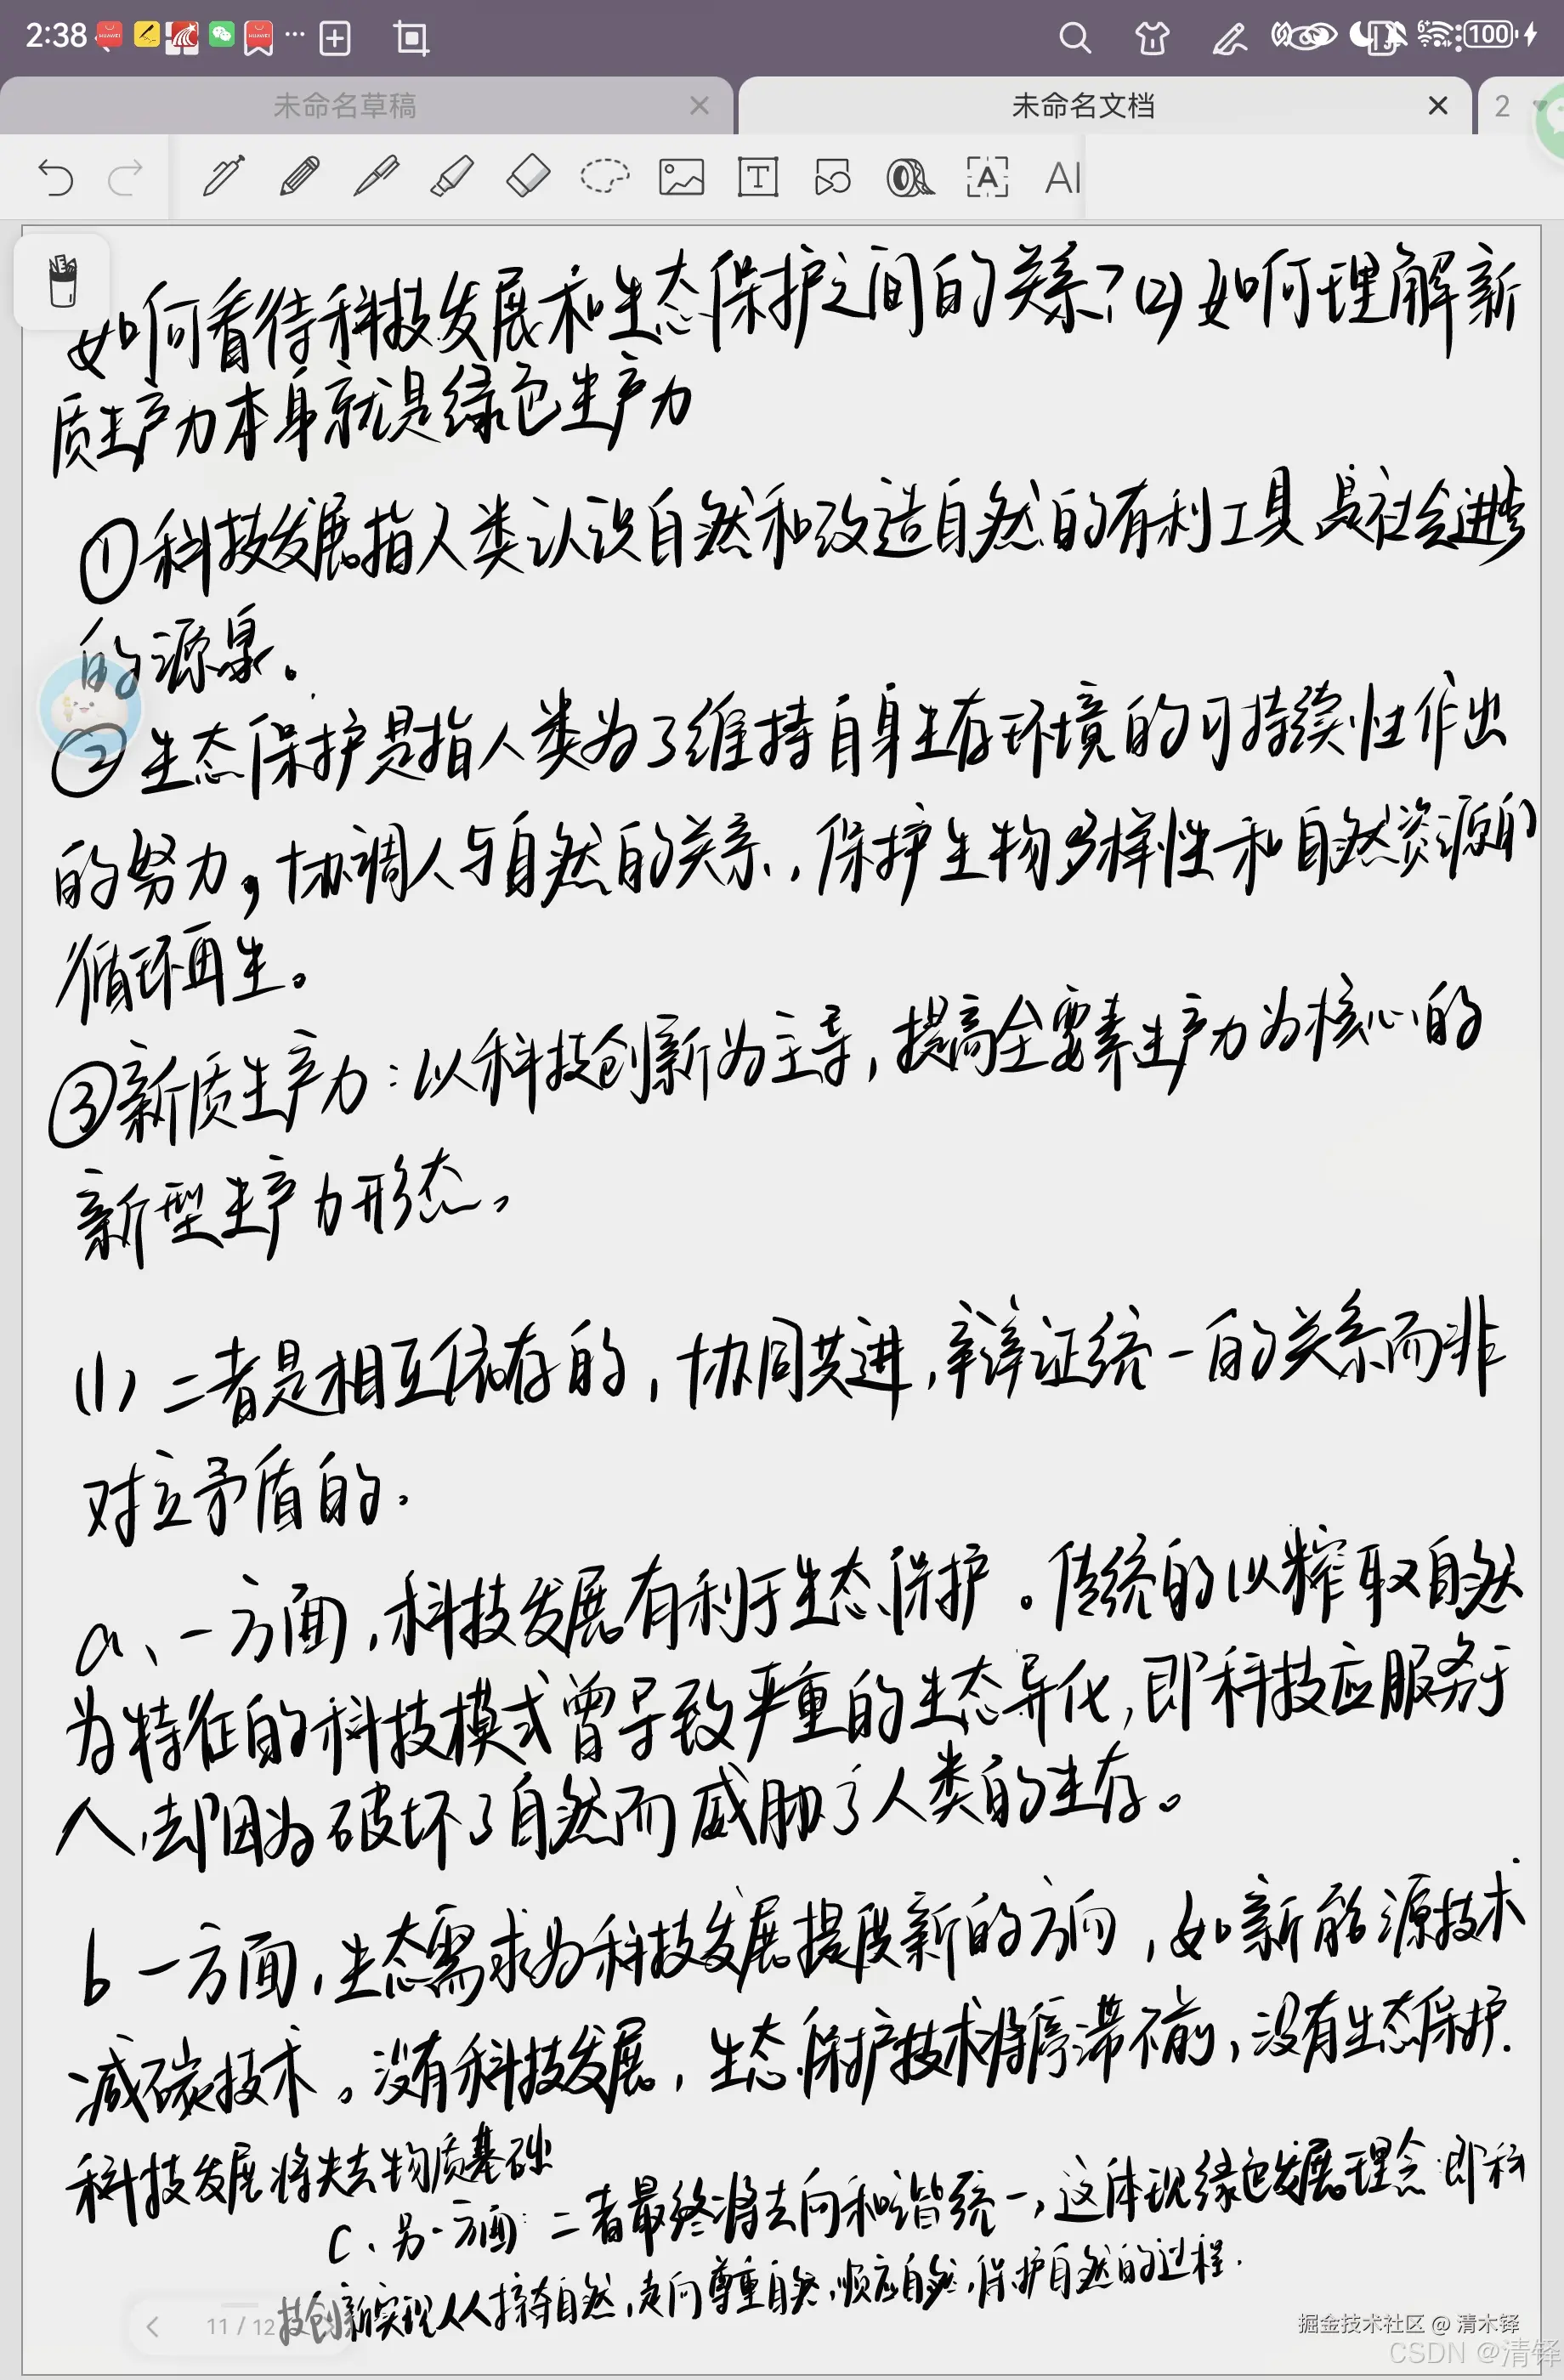 2:38
100
未命名草稿
未命名文档
2
T
A
AI
如何看待科技发展和生态保护之间的关系?(2)如何理解新
质生产力本身就是绿色生产力
①科技发展指人类认识自然和改造自然的有利工具是社会进步
的源泉。
②生态保护是指人类为了维持自身生存环境的可持续性作出
的努力,协调人与自然的关系,保护生物多样性和自然资源的
循环再生。
③新质生产力:以科技创新为主导,提高全要素生产力为核心的
新型生产力形态。
(1)二者是相互依存的,协同共进,辩证统一的关系而非
对立矛盾的.
a、一方面,科技发展有利于生态保护。传统的以榨取自然
为特征的科技模式曾导致严重的生态异化,即科技应服务于
人,却因为破坏了自然而威胁了人类的生存。
b 一方面,生态需求为科技发展提供新的方向,如新能源技术
减碳技术。没有科技发展,生态保护技术将停滞不前,没有生态保护.
科技发展将失去物质基础
C、另一方面:二者最终将去向和谐统一,这体现绿色发展理念 即科
技创新实现人从掠夺自然,走向尊重自然,顺应自然,保护自然的过程.
11 / 12
掘金技术社区 @ 清木铎
CSDN @清铎